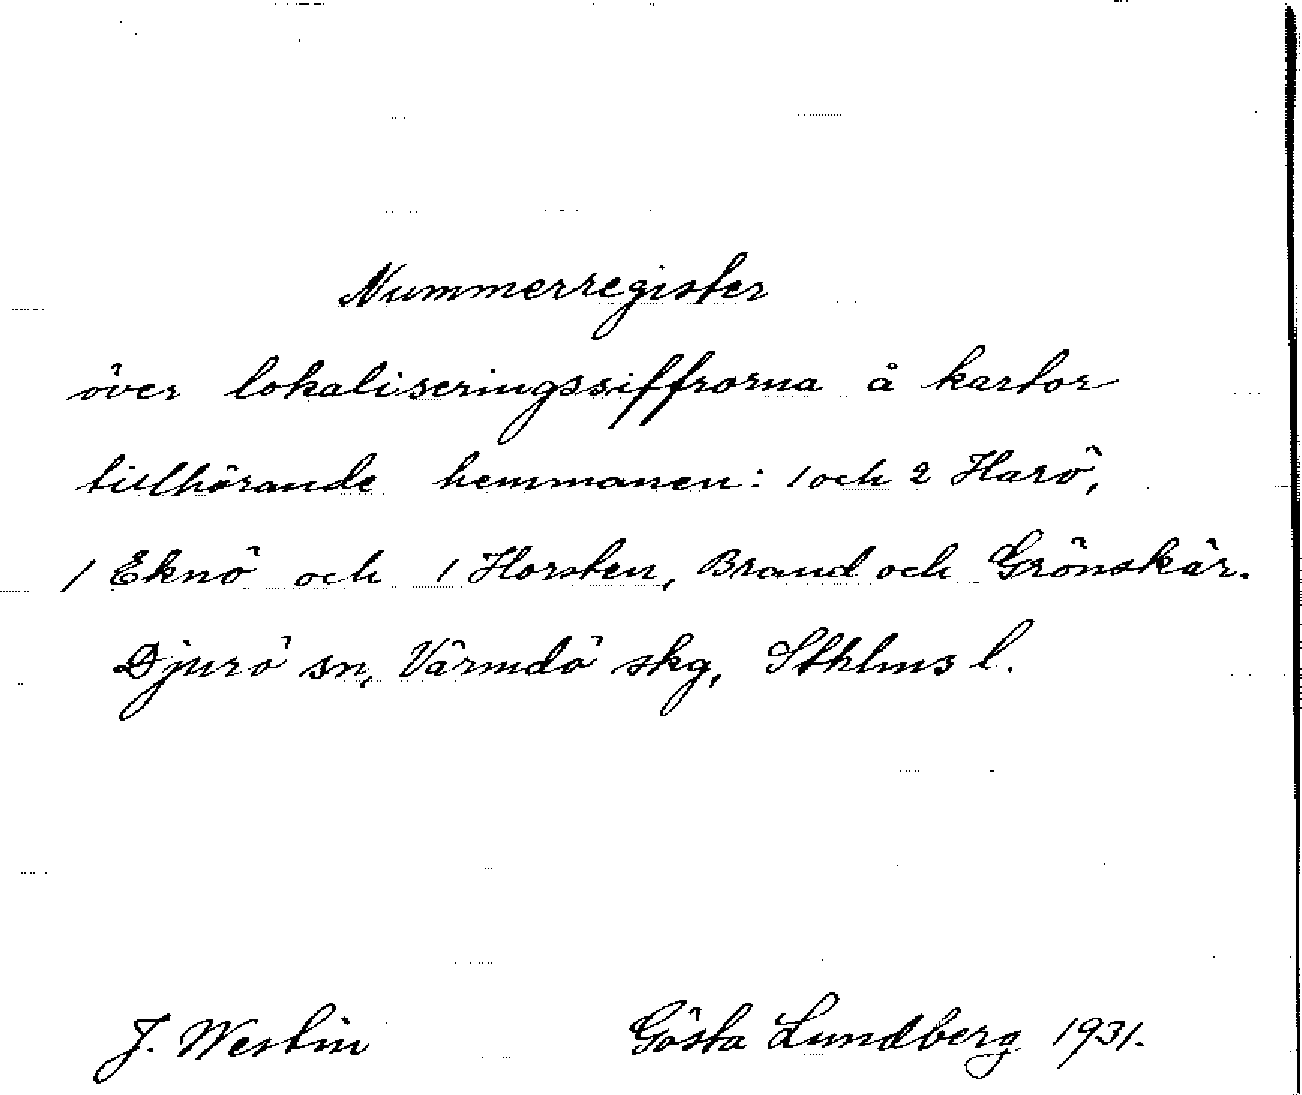 Nummerregister
över lokaliseringssiffrorna å kartor
tillhörande hemmanen: 1 och 2 Harö,
1 Eknö och 1 Horsten, Brand och Grönskär.
Djurö sn, Värmdö skg, Sthlms l.
J. Westin Gösta Lundberg 1931.